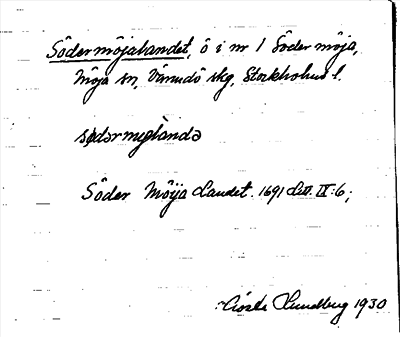 Södermöjalandet, ö i nr 1 Södermöja,
Möja sn, Värmdö skg, Stockholms l.
sɵdərmøjlàndə
Söder Möija Landet. 1691 Litt. IX:6;
Gösta Lundberg 1930